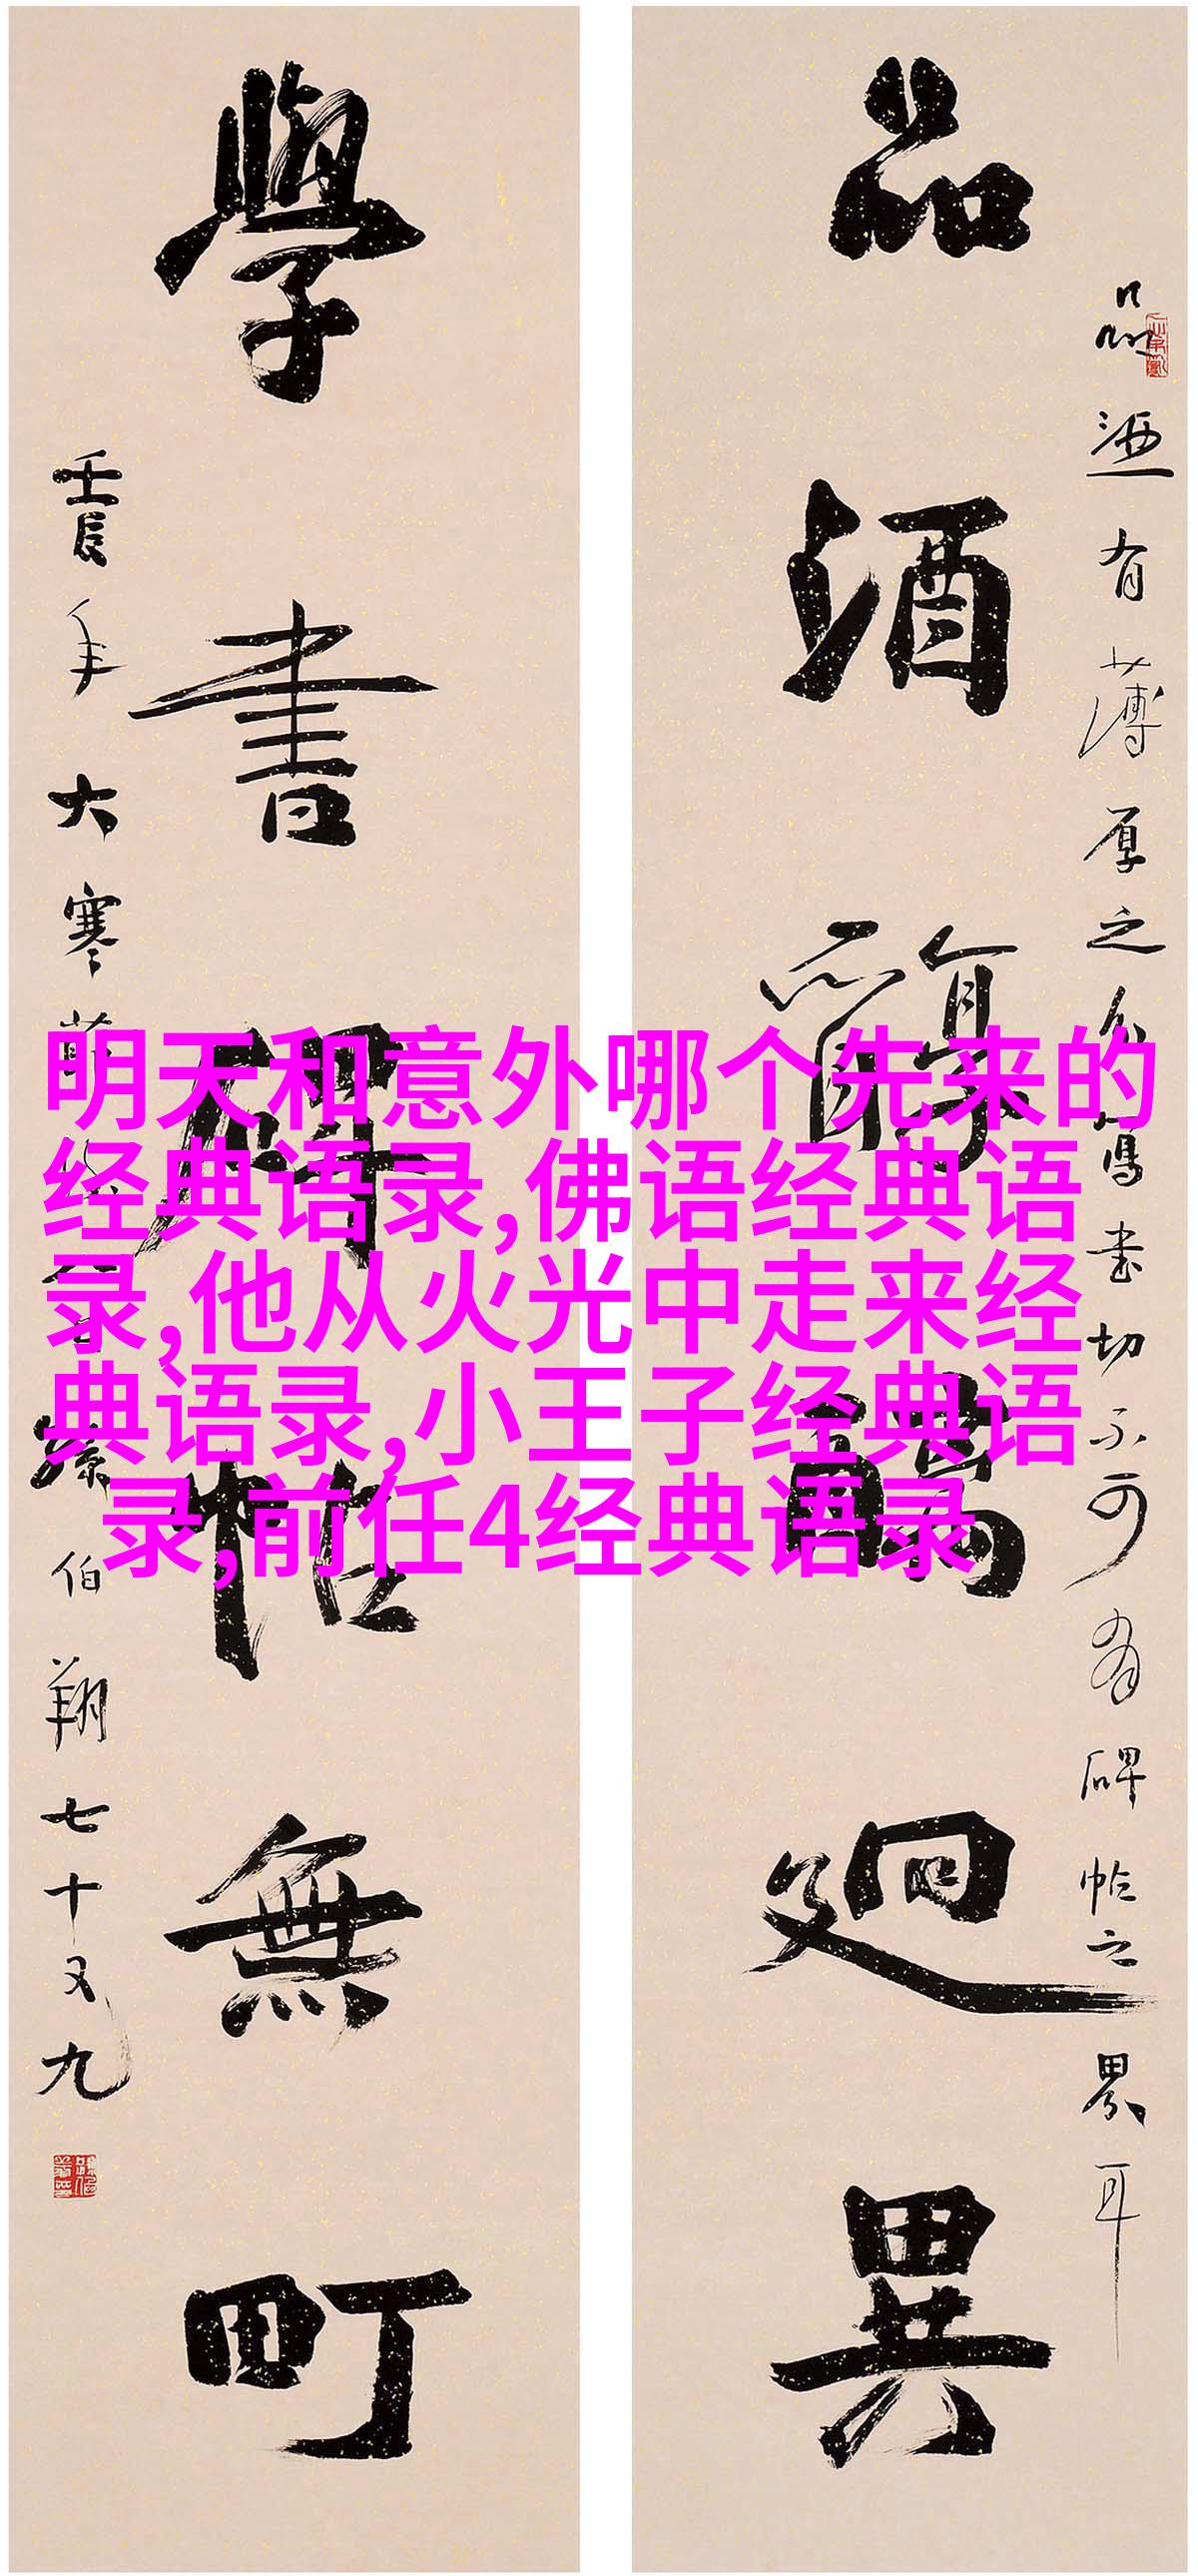 品酒有薄厚之書切不可有碑帖之界耳
品酒醇醨廻異
學書碑帖無町
壬辰年大寒孫伯翔七十又九
明天和意外哪个先来的
经典语录,佛语经典语
录,他从火光中走来经
典语录,小王子经典语
录,前任4经典语录